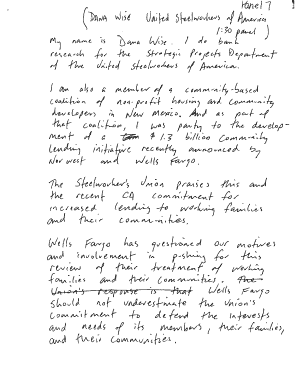 Panel 7
1
(Dana Wise United Steelworkers of America
1:30 panel)
My name is Dana Wise. I do bank
research for the Strategic Projects Department
of the United Steelworkers of America.
I am also a member of a community-based
coalition of non-profit housing and community
developers in New Mexico. And as part of
that coalition, I was party to the develop-
ment of a $1.3 billion Community
lending initiative recently announced by
Norwest and Wells Fargo.
The Steelworkers Union praises this and
the recent CA commitment for
increased lending to working families
and their communities.
Wells Fargo has questioned our motives
and involvement in pushing for this
review of their treatment of working
families and their communities. The
Union's response is that Wells Fargo
should not underestimate the Union's
commitment to defend the interests
and needs of its members, their families,
and their communities.